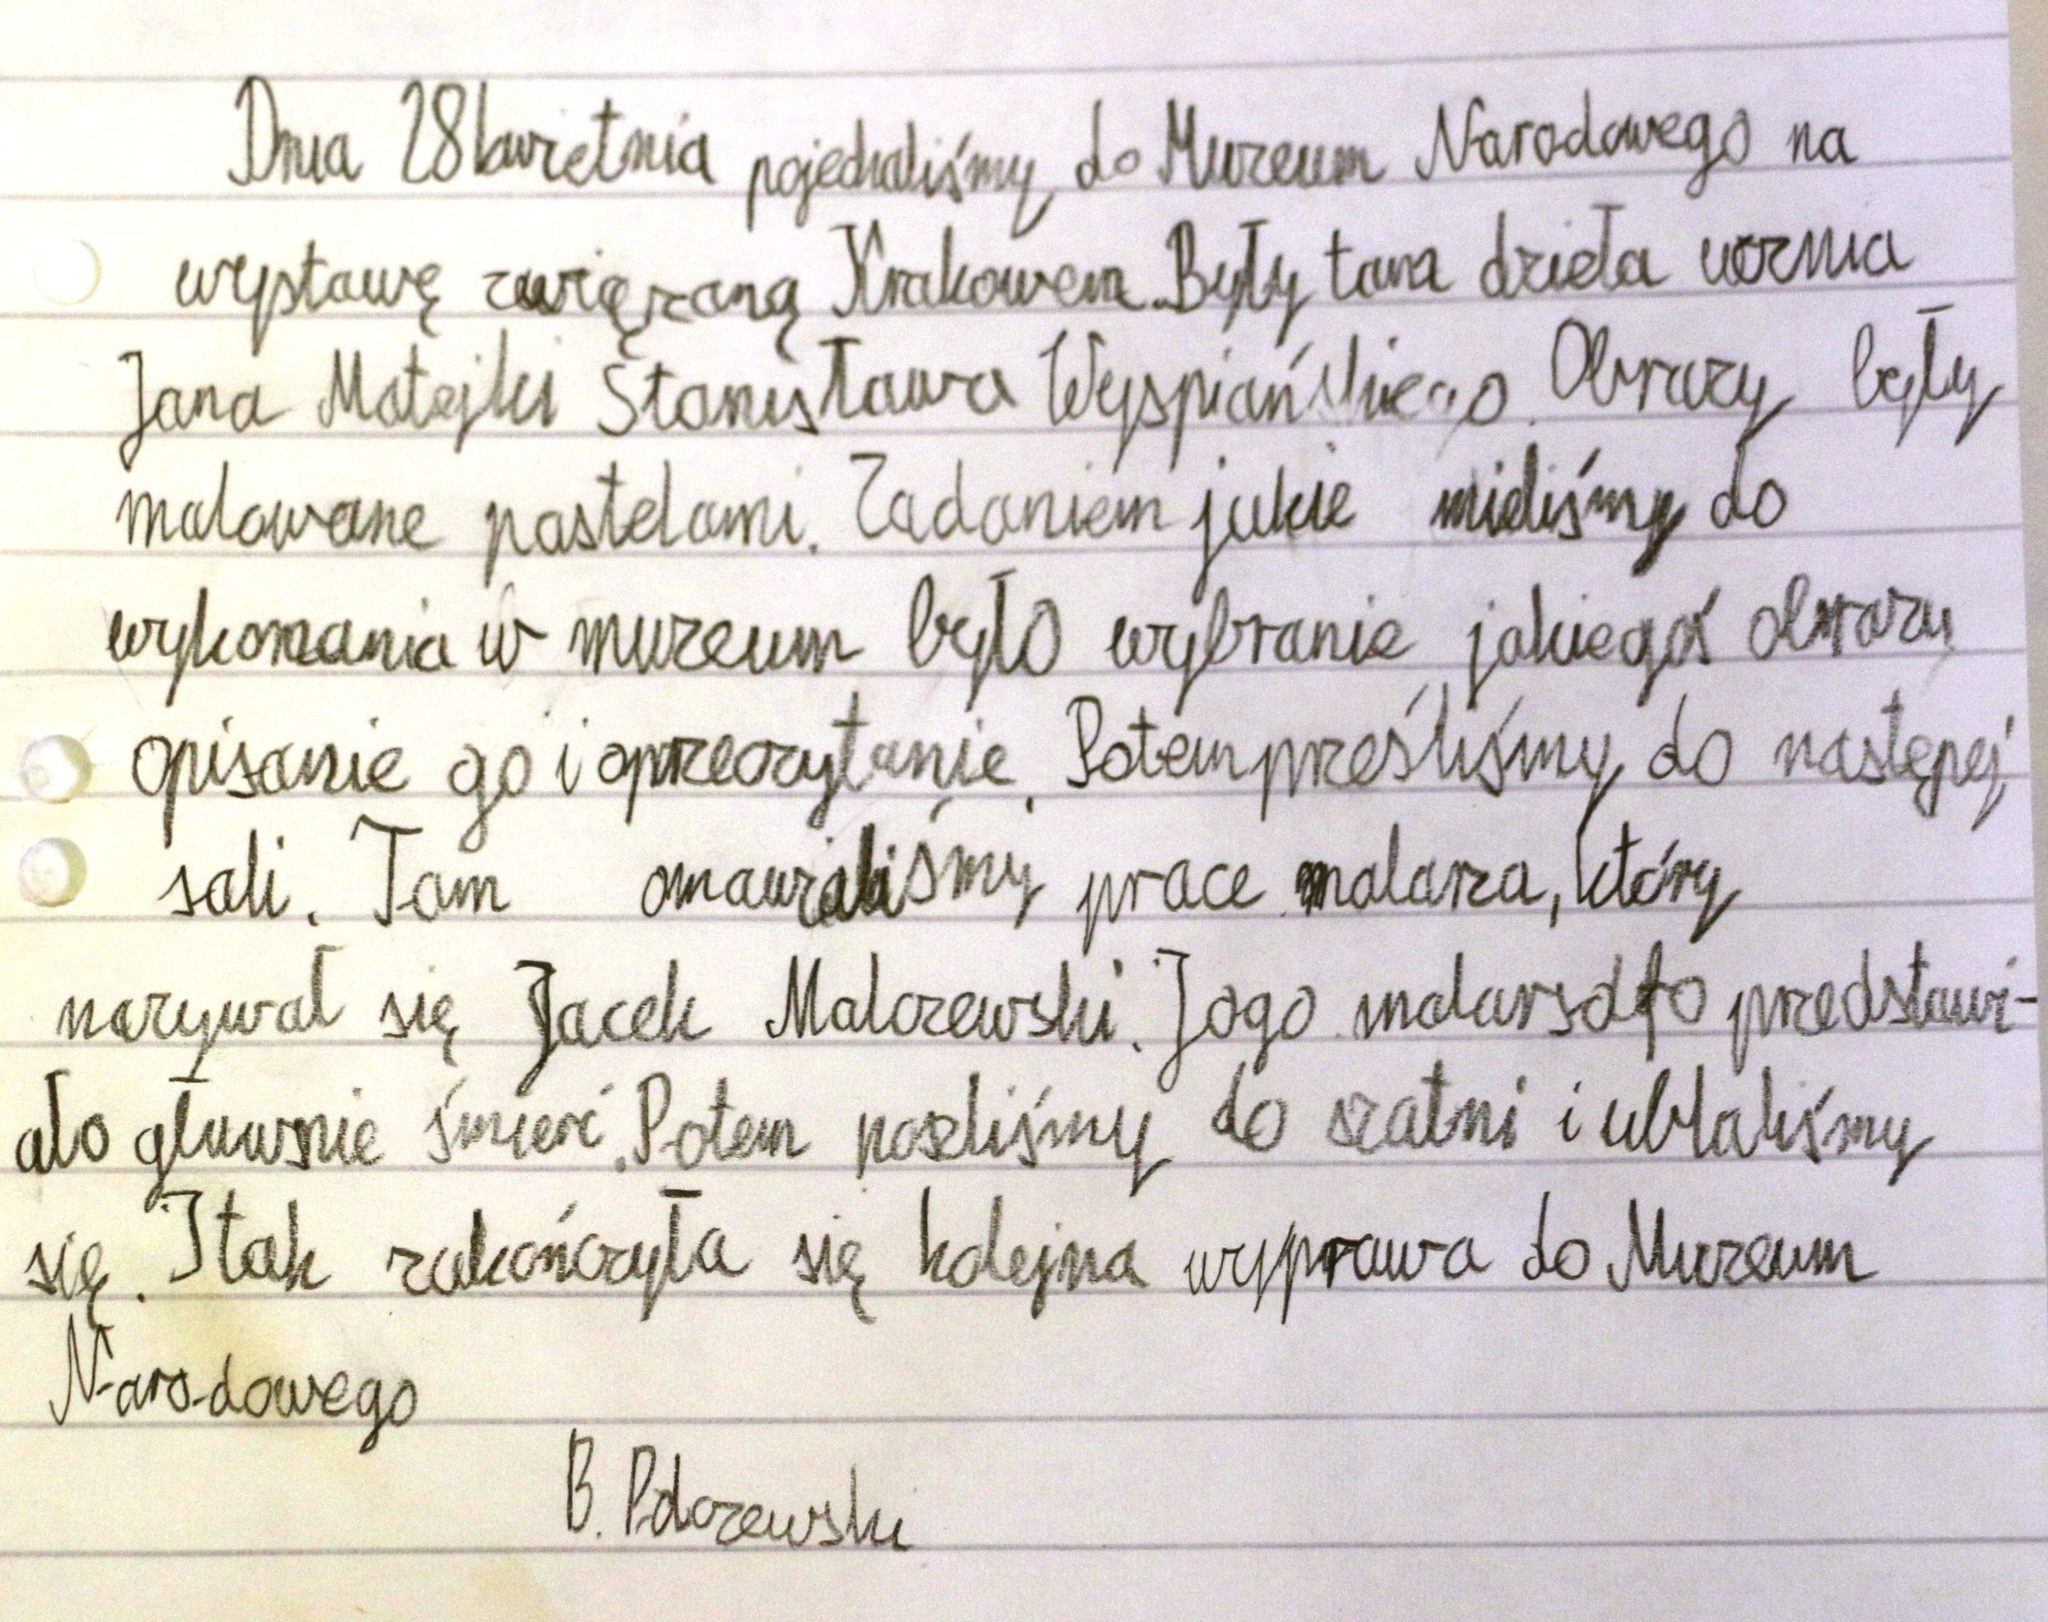 Dnia 28 kwietnia pojechaliśmy do Muzeum Narodowego na
wystawę związaną Krakowem. Były tam dzieła ucznia
Jana Matejki Stanisława Wyspiańskiego. Obrazy były
malowane pastelami. Zadaniem jakie mieliśmy do
wykonania w muzeum było wybranie jakiegoś obrazu
opisanie go i oprzeczytanie. Potem prześliśmy do następej
sali. Tam omawialiśmy prace malarza, który
nazywał się Jacek Malczewski. Jogo predstawi-
ało głuwnie śmierć. Potem poszliśmy do szatni i ubłaliśmy
się. I tak zakończyła się kolejna wyprawa do Muzeum
Narodowego
B. Polczewski